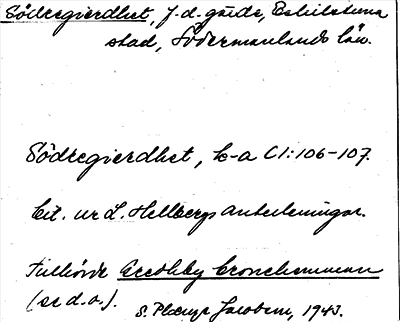 Södregierdhet, f.d. gärde, Eskilstuna
stad, Södermanlands län.
Södregierdhet, k-a C1:106-107.
Cit. ur L. Hellbergs anteckningar.
Tillhörde
(se d.o.). S. Jacobsen, 1943.